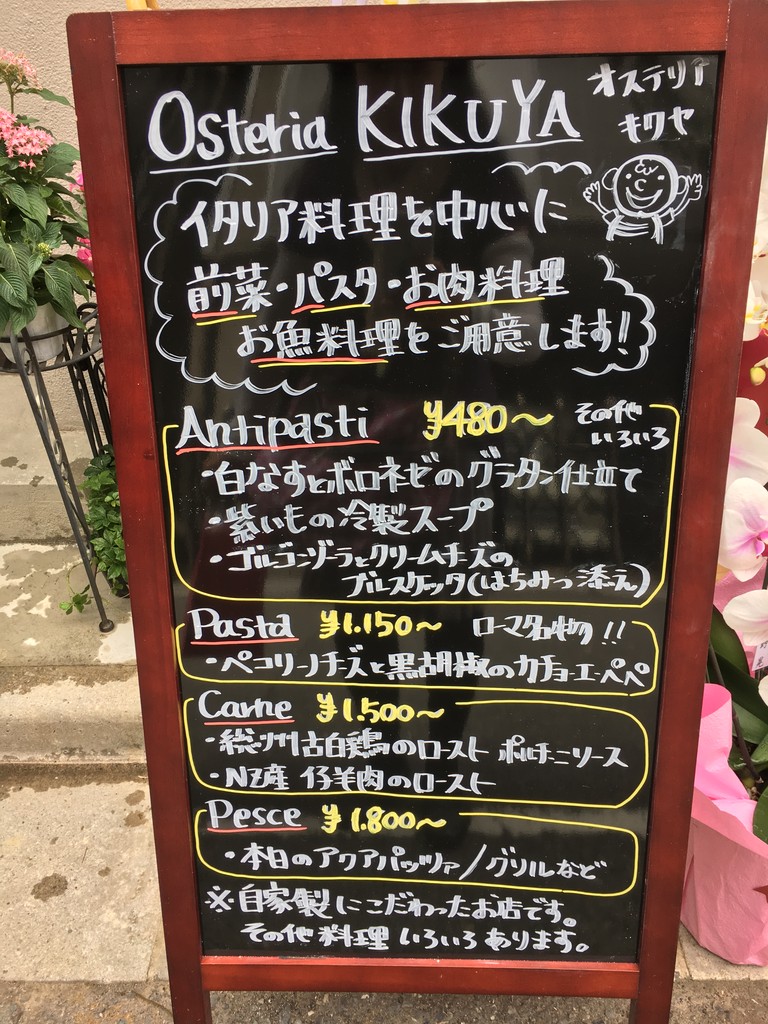 Osteria KIKUYA
オステリア
キクヤ
イタリア料理を中心に
前菜・パスタ・お肉料理
お魚料理をご用意します!
Antipasti ¥480〜 その他
いろいろ
・白なすとボロネゼのグラタン仕立て
・紫いもの冷製スープ
・ゴルゴンゾーラとクリームチーズの
ブルスケッタ(はちみつ添え)
Pasta ¥1.150〜 ローマ名物!!
・ペコリーノチーズと黒胡椒のカチョ・エ・ペペ
Carne ¥1.500〜
・総州古白鶏のロースト ポルチーニソース
・NZ産 仔羊肉のロースト
Pesce ¥1.800〜
・本日のアクアパッツァ/グリルなど
※自家製にこだわったお店です。
その他料理いろいろあります。